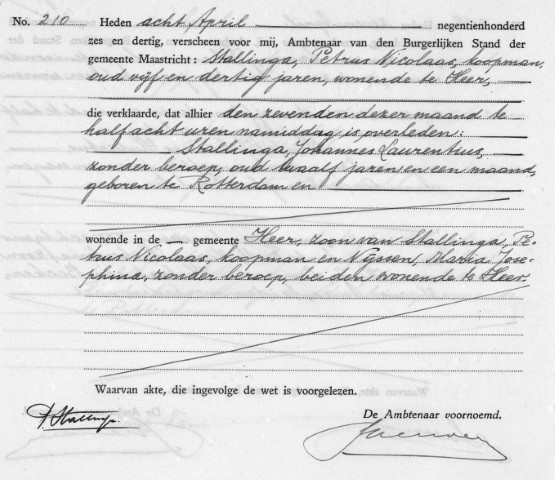 No. 210 Heden acht April negentienhonderd
zes en dertig, verscheen voor mij, Ambtenaar van den Burgerlijken Stand der
gemeente Maastricht: Stallinga, Petrus Nicolaas, koopman,
oud vijf en dertig jaren, wonende te Heer,
die verklaarde, dat alhier den zevenden dezer maand te
half acht uren namiddag is overleden:
Stallinga, Johannes Laurentius,
zonder beroep, oud twaalf jaren en een maand,
geboren te Rotterdam en
wonende in de — gemeente Heer, zoon van Stallinga, Pe-
trus Nicolaas, koopman en Nijssen, Maria Jose-
phina, zonder beroep, beiden wonende te Heer.
Waarvan akte, die ingevolge de wet is voorgelezen.
De Ambtenaar voornoemd.
P. Stallinga